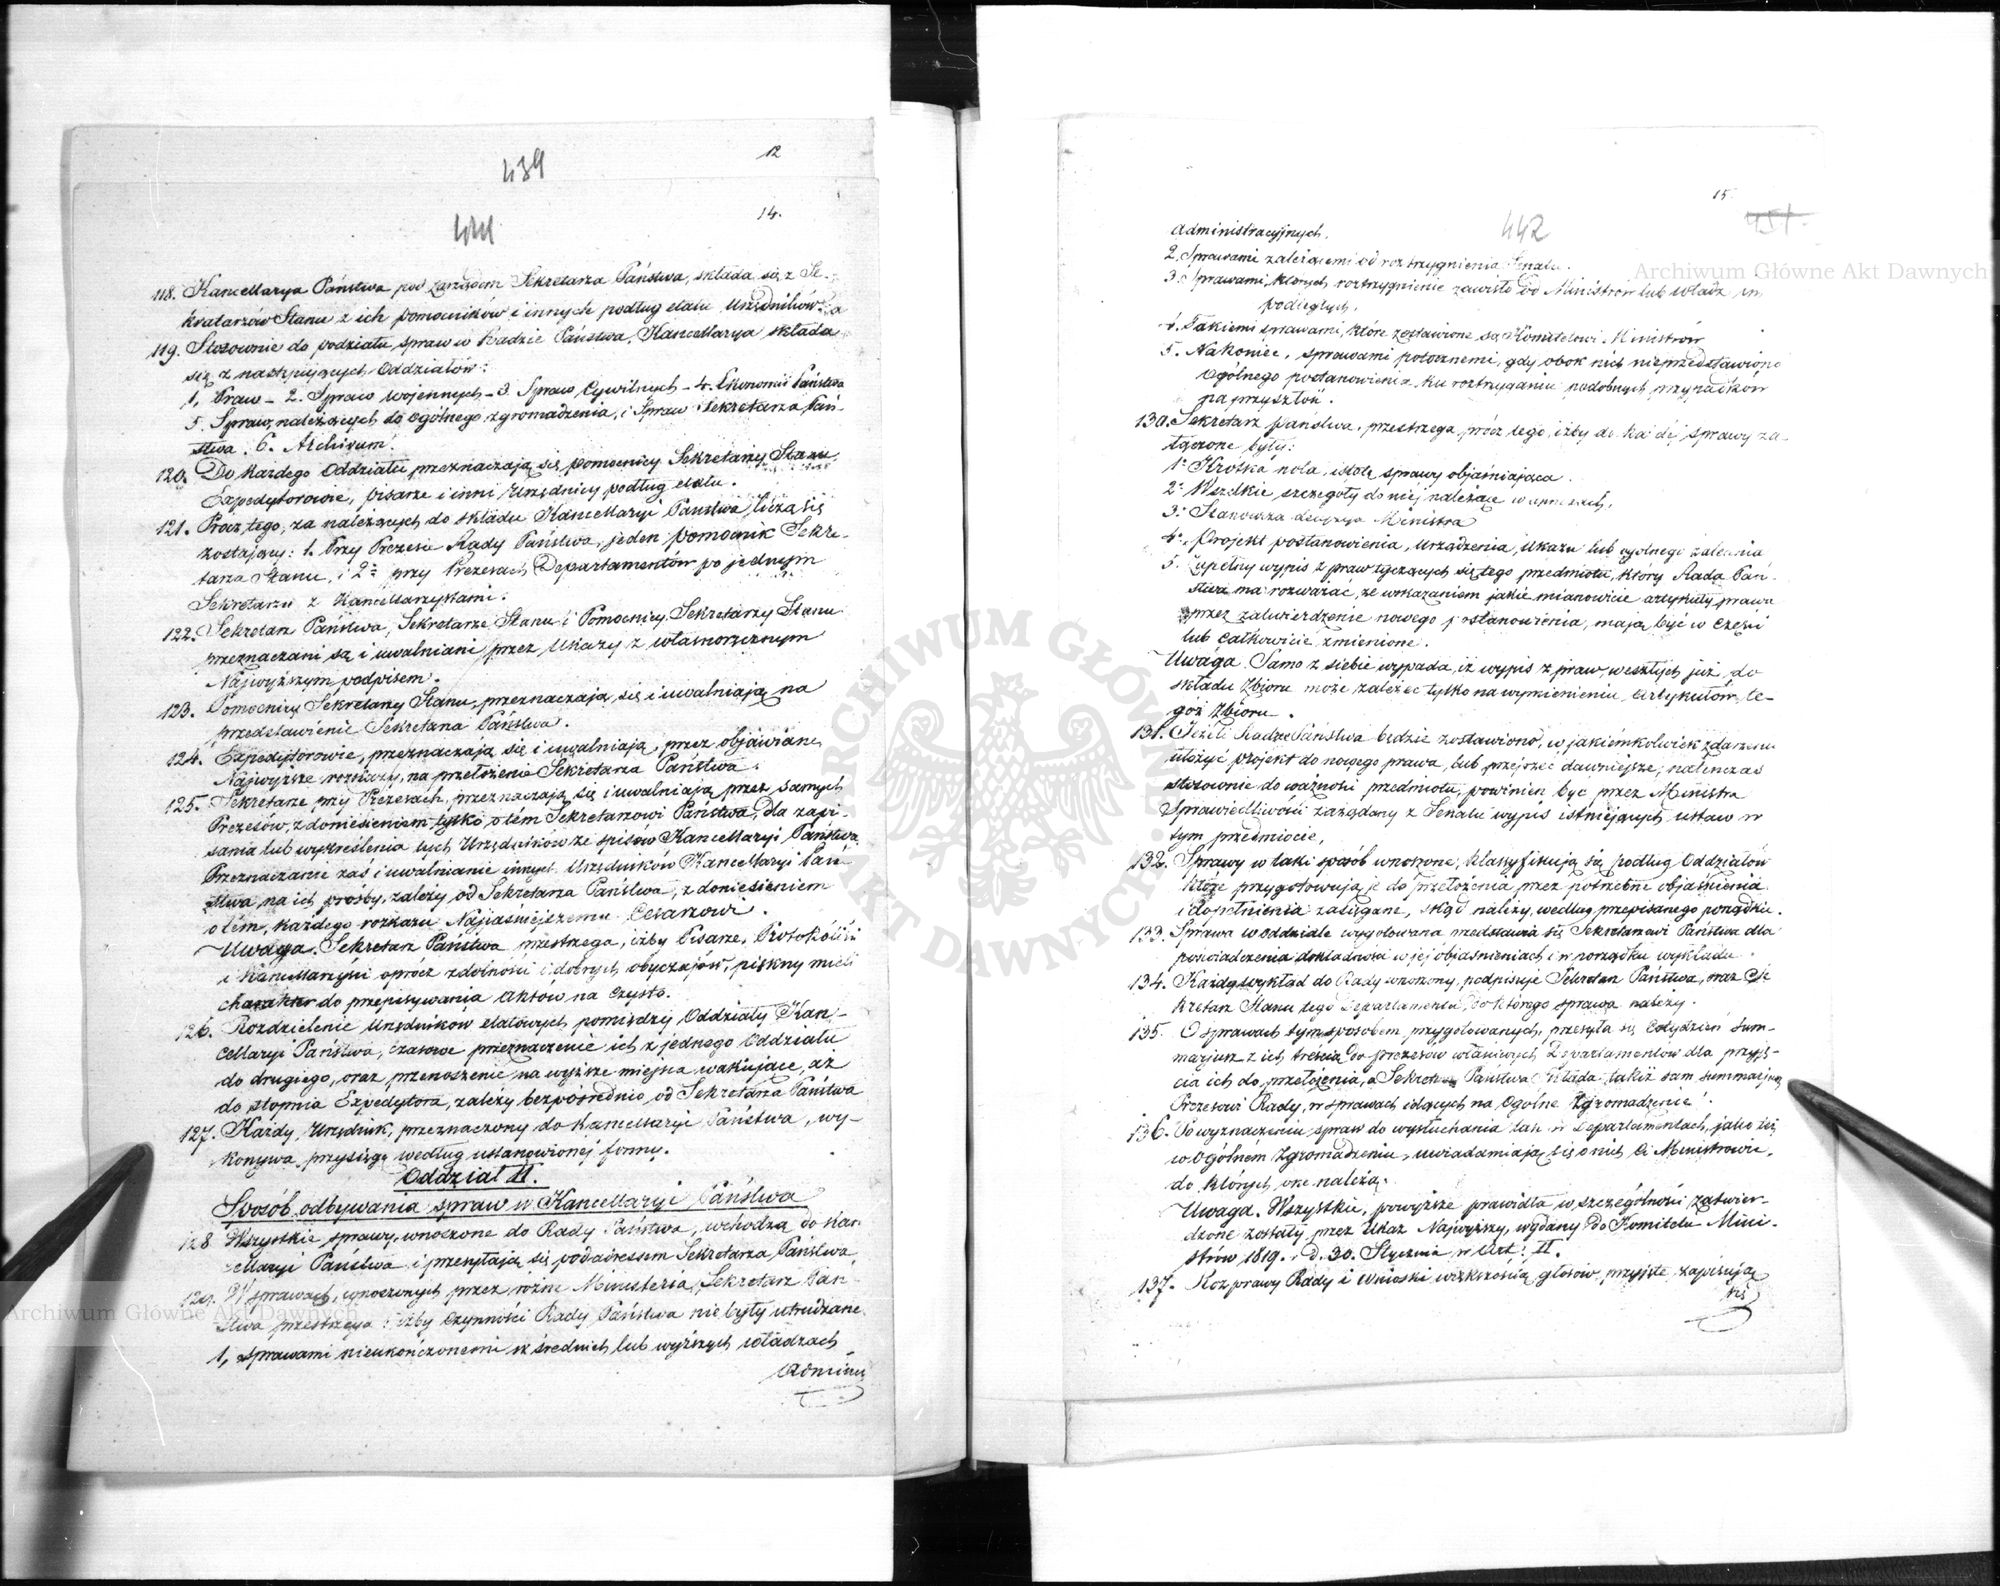 439
12
441
14.
118. Kancellarya Państwa pod zarządem Sekretarza Państwa, składa się z Se-
kretarzów Stanu z ich pomocników i innych podług etatu Urzędników.
119. Stosownie do podziału spraw w Radzie Państwa, Kancellarya składa
się z następujących Oddziałów:
1, Praw – 2. Spraw wojennych – 3. Spraw Cywilnych – 4. Ekonomii Państwa
5. Spraw, należących do Ogólnego zgromadzenia, i Spraw Sekretarza Pań-
stwa. 6. Archivum.
120. Do każdego Oddziału przeznaczają się pomocnicy Sekretarzy Stanu,
Expedytorowie, pisarze i inni Urzędnicy podług etatu.
121. Prócz tego, za należących do składu Kancellaryi Państwa, liczą się
zostający: 1. Przy Prezesie Rady Państwa, jeden pomocnik Sekre-
tarza Stanu, i 2º przy Prezesach Departamentów po jednym
Sekretarzu z Kancellarzystami.
122. Sekretarz Państwa, Sekretarze Stanu i Pomocnicy Sekretarzy Stanu
przeznaczani są i uwalniani przez Ukazy z własnoręcznym
Najwyższym podpisem.
123. Pomocnicy Sekretarzy Stanu, przeznaczają się i uwalniają na
przedstawienie Sekretarza Państwa.
124. Expedytorowie, przeznaczają się i uwalniają, przez objawiane
Najwyższe rozkazy, na przełożenie Sekretarza Państwa.
125. Sekretarze przy Prezesach, przeznaczają się i uwalniają przez samych
Prezesów, z doniesieniem tylko o tém Sekretarzowi Państwa, dla zapi-
sania lub wykreślenia tych Urzędników ze spisów Kancellaryi Państwa.
Przeznaczanie zaś i uwalnianie innych Urzędników Kancellaryi Pań-
stwa, na ich prośby, zależy od Sekretarza Państwa, z doniesieniem
o tém, każdego rozkazu Najjaśniejszemu Cesarzowi.
Uwaga. Sekretarz Państwa przestrzega, iżby Pisarze, Protokóliści
i Kancellarzyści oprócz zdolności i dobrych obyczajów, piękny mieli
charakter do przepisywania aktów na czysto.
126. Rozdzielenie Urzędników etatowych pomiędzy Oddziały Kan-
cellaryi Państwa, czasowe przeznaczenie ich z jednego Oddziału
do drugiego, oraz przenoszenie na wyższe miejsca wakujące, aż
do stopnia Expedytora, zależy bezpośrednio od Sekretarza Państwa
127. Każdy Urzędnik, przeznaczony do Kancellaryi Państwa, wy-
konywa przysięgę według ustanowionej formy.
Oddział II.
Sposób odbywania spraw w Kancellaryi Państwa
128 Wszystkie sprawy, wnoszone do Rady Państwa, wchodzą do Kan-
cellaryi Państwa i przesyłają się pod adresem Sekretarza Państwa
129. W sprawach, wnoszonych przez różne Ministeria, Sekretarz Pań-
stwa przestrzega: iżby czynności Rady Państwa nie były utrudzane
1, Sprawami nieukończonemi w średnich lub wyższych władzach
Admini
15.
442
451
Administracyjnych.
2. Sprawami zależącemi od rozstrzygnienia Senatu.
3. Sprawami, których rozstrzygnienie zawisło od Ministrów lub Władz im
podległych.
4. Takiemi sprawami, które zostawione są Komitetowi Ministrów
5. Nakoniec, sprawami potocznemi, gdy obok nich nieprzedstawiono
Ogólnego postanowienia ku roztrzyganiu podobnych przypadków
na przyszłość.
130. Sekretarz Państwa, przestrzega prócz tego, iżby do każdej sprawy za-
łączone były:
1º Krótka nota, istotę sprawy objaśniająca.
2º Wszelkie szczegóły do niej należące w wypisach,
3º Stanowcza decyzya Ministra
4º, Projekt postanowienia, Urządzenia, Ukazu lub ogólnego zalecenia
5. Zupełny wypis z praw tyczących się tego przedmiotu, który Rada Pań-
stwa ma rozważać, ze wskazaniem jakie mianowicie artykuły prawa
przez zatwierdzenie nowego postanowienia, mają być w części
lub całkowicie zmienione.
Uwaga. Samo z siebie wypada, iż wypis z praw, weszłych już do
składu Zbioru może zależeć tylko na wymienieniu Artykułów te-
goż Zbioru.
131. Jeżeli Radzie Państwa będzie zostawiono, w jakiémkolwiek zdarzeniu
ułożyć projekt do nowego prawa, lub przejrzeć dawniejsze; natenczas
stosownie do ważności przedmiotu, powinien być przez Ministra
Sprawiedliwości zażądany z Senatu wypis istniejących ustaw w
tym przedmiocie.
132. Sprawy w taki sposób wnoszone, klasyfikują się podług Oddziałów
które przygotowują je do przełożenia przez potrzebne objaśnienia
i dopełnienia zasięgane, skąd należy, według przepisanego porządku.
133. Sprawa w oddziale wygotowana przedstawia się Sekretarzowi Państwa dla
poświadczenia dokładności w jej objaśnieniach i w porządku wykładu.
134. Każdy wykład do Rady wnoszony, podpisuje Sekretarz Państwa, oraz Se-
kretarz Stanu tego Departamentu, do którego sprawa należy.
135. O sprawach tym sposobem przygotowanych, przesyła się cotydzień sum-
maryusz z ich treścią do prezesów właściwych Departamentów dla przyję-
cia ich do przełożenia, a Sekretarz Państwa składa takiż sam summaryusz
Prezesowi Rady, w sprawach idących na Ogólne Zgromadzenie.
136. Po wyznaczeniu spraw do wysłuchania tak w Departamentach, jako też
w Ogólném Zgromadzeniu, uwiadamiają się o nich Ci Ministrowie,
do których one należą.
Uwaga. Wszystkie, powyższe prawidła w szczególności zatwier-
dzone zostały przez Ukaz Najwyższy, wydany do Komitetu Mini-
strów 1819. r. d. 30. Stycznia w Art: II.
137. Rozprawy Rady i wnioski większością głosów przyjęte zapisują
się
Archiwum Główne Akt Dawnych
Archiwum Główne Akt Dawnych
ARCHIWUM GŁÓWNE AKT DAWNYCH